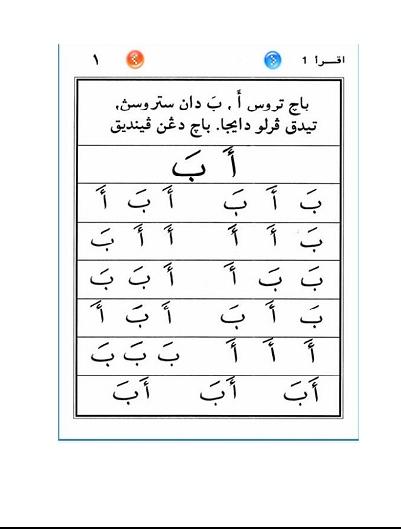 اقـــرأ 1 ١
باچ تروس أَ , بَ دان ستروسڽ,
تيدق ڤرلو دايجا. باچ دڠن ڤينديق
أَ بَ
بَ أَ بَ أَ بَ أَ
بَ أَ أَ أَ أَ بَ
بَ بَ أَ أَ بَ بَ
بَ أَ بَ أَ بَ أَ
أَ أَ أَ بَ بَ بَ
أَبَ أَبَ أَبَ